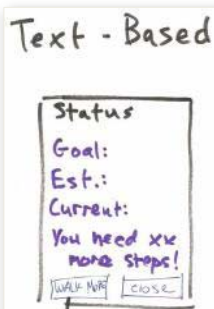 Text - Based
Status
Goal:
Est.:
Current:
You need xx
more steps!
WALK MORE close